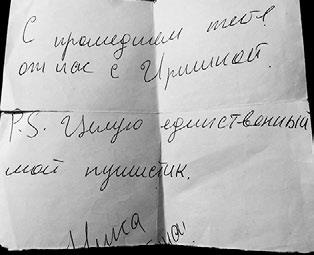 С прошедшем тебя
от нас с Иришкой.
P.S. Целую единственный
мой пушистик.